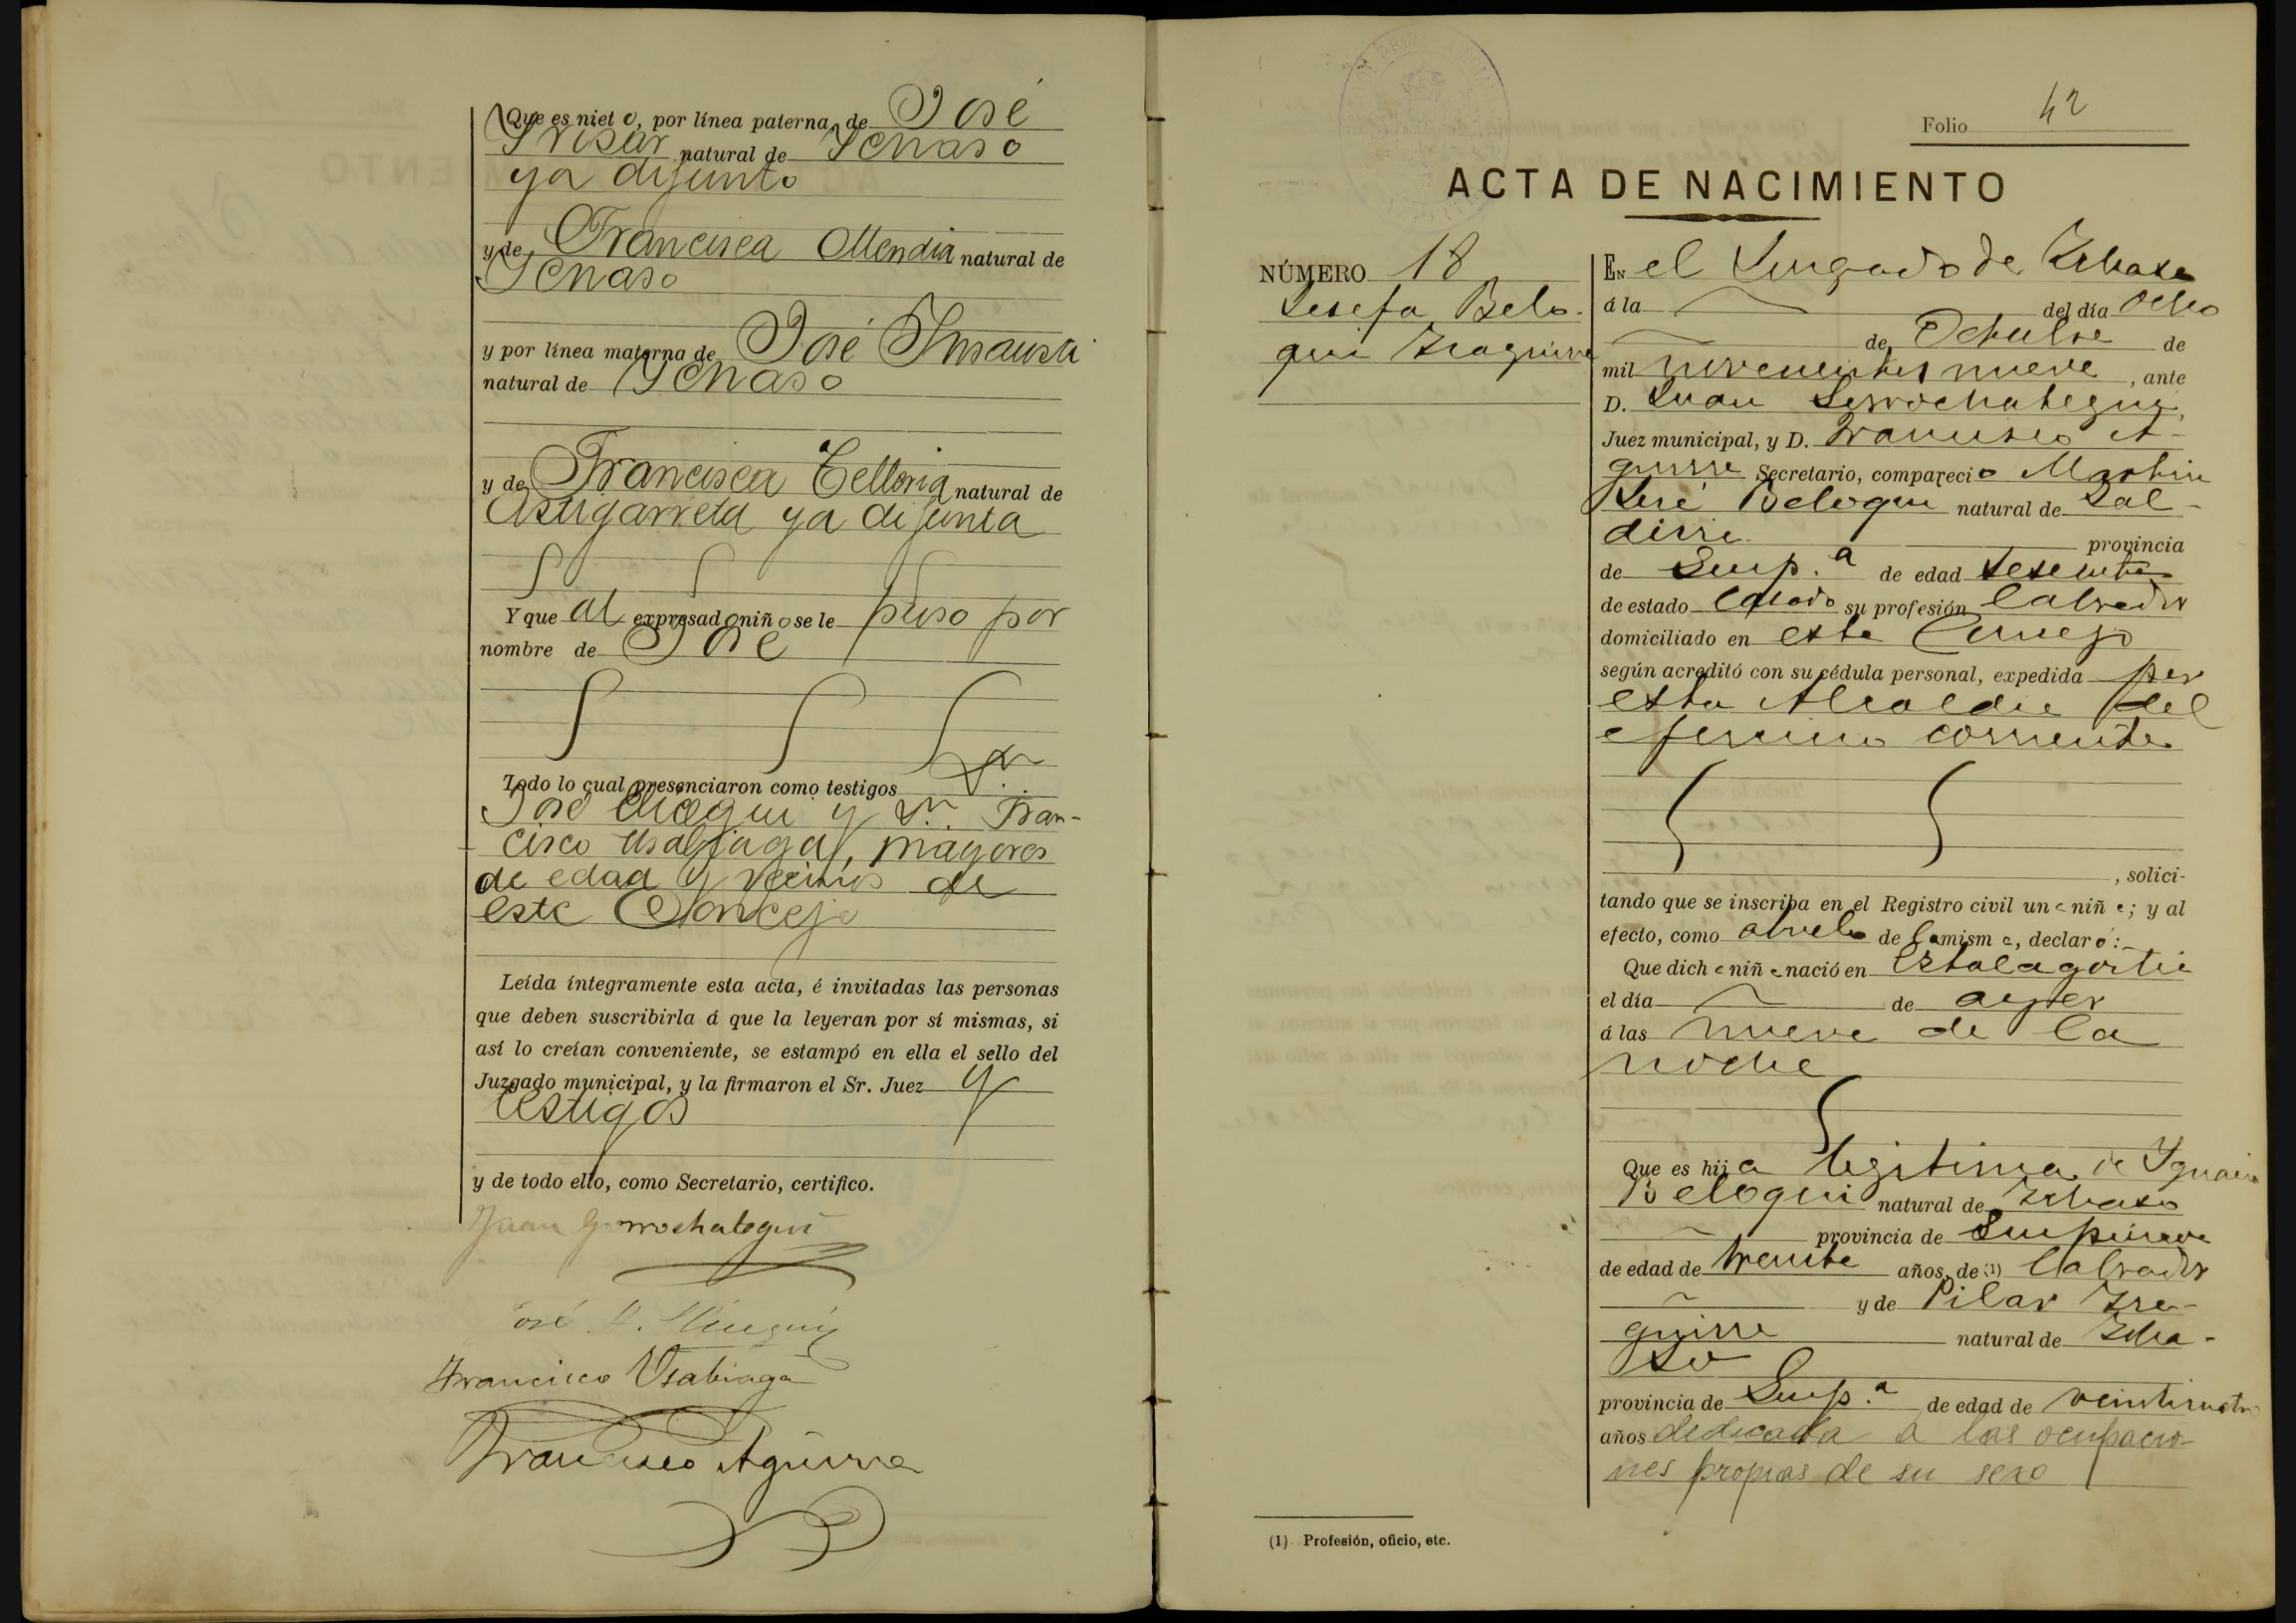 Que es nieto, por línea paterna, de José
Irisar natural de Ichaso
ya difunto
y de Francisca Mendia natural de
Ichaso
y por línea materna de José Insausti
natural de Ichaso
y de Francisca Telleria natural de
Astigarreta ya difunta
Y que al expresado niño se le puso por
nombre de José
Todo lo cual presenciaron como testigos Dn.
José y Dn. Fran-
cisco Usabiaga, mayores
de edad y vecinos de
este Concejo
Leída íntegramente esta acta, é invitadas las personas
que deben suscribirla á que la leyeran por sí mismas, si
así lo creían conveniente, se estampó en ella el sello del
Juzgado municipal, y la firmaron el Sr. Juez y
testigos
y de todo ello, como Secretario, certifico.
Juan Gorrochategui
José
Francisco Usabiaga
Francisco Aguirre
Folio 42
ACTA DE NACIMIENTO
NÚMERO 18
Josefa Belo-
qui Izaguirre
En el Juzgado de Ichaso
á la del día ocho
de Octubre de
mil novecientos nueve, ante
D. Juan Gorrochategui,
Juez municipal, y D. Francisco A-
guirre Secretario, compareció Martin
José Beloqui natural de Zal-
divia provincia
de Guip.a de edad sesenta
de estado casado su profesión labrador
domiciliado en este Concejo
según acreditó con su cédula personal, expedida por
esta Alcaldia del
ejercicio corriente
, solici-
tando que se inscriba en el Registro civil una niña; y al
efecto, como abuelo de la misma, declaró:
Que dicha niña nació en
el día de ayer
á las nueve de la
noche
Que es hija legitima de Ignacio
Beloqui natural de Ichaso
provincia de Guipúzcoa
de edad de treinta años, de (1) labrador
y de Pilar Iza-
guirre natural de Icha-
so
provincia de Guip.a de edad de veinticuatro
años dedicada a las ocupacio-
nes propias de su sexo
(1) Profesión, oficio, etc.